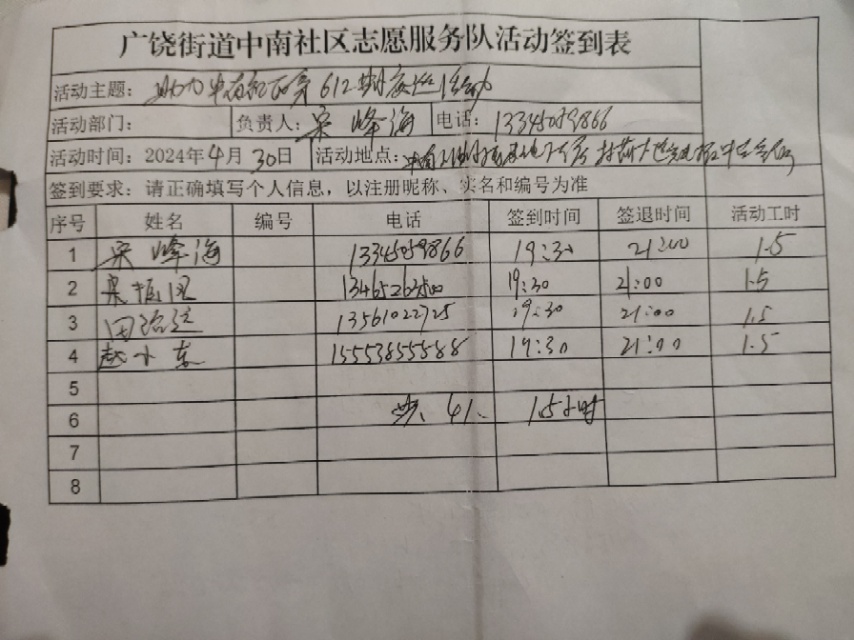 广饶街道中南社区志愿服务队活动签到表
活动主题： 助力中南 612期夜巡活动
活动部门： 负责人： 峰海 电话：13345059866
活动时间：2024年4月30日 活动地点：中南
签到要求：请正确填写个人信息，以注册昵称、实名和编号为准
序号 姓名 编号 电话 签到时间 签退时间 活动工时
1 峰海 13345059866 19:30 21:00 1.5
2 13465263500 19:30 21:00 1.5
3 田 13561022725 19:30 21:00 1.5
4 赵小东 15553855588 19:30 21:00 1.5
5
6 共 4人 1.5小时
7
8